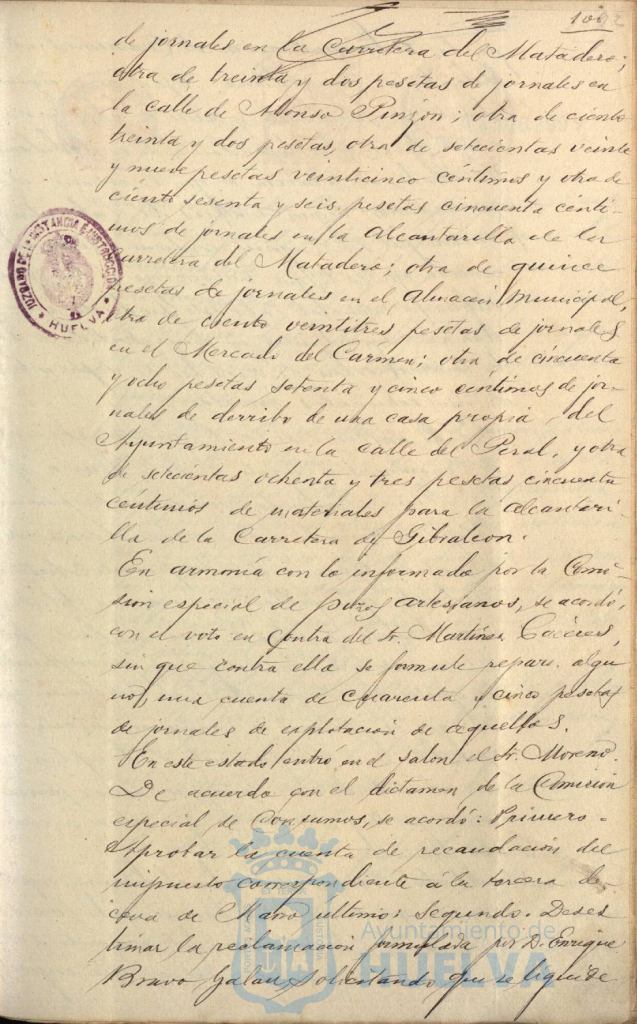 102
de jornales en la Carretera del Matadero;
otra de treinta y dos pesetas de jornales en
la calle de Alonso Pinzon; otra de ciento
treinta y dos pesetas, otra de setecientas veinte
y nueve pesetas veinticinco céntimos y otra de
ciento sesenta y seis pesetas cincuenta cénti-
mos de jornales en la Alcantarilla de la
Carretera del Matadero; otra de quince
pesetas de jornales en el Almacén Municipal,
otra de ciento veintitres pesetas de jornales
en el Mercado del Carmen; otra de cincuenta
y ocho pesetas setenta y cinco céntimos de jor-
nales de derribo de una casa propia del
Ayuntamiento en la calle del Peral, y otra
de setecientas ochenta y tres pesetas cincuenta
céntimos de materiales para la Alcantari-
lla de la Carretera de Gibraleon.
En armonía con lo informado por la Comi-
sion especial de pozos artesianos, se acordó,
con el voto en contra del Sr. Martinez
sin que contra ella se formule reparo algu
no, una cuenta de cuarenta y cinco pesetas
de jornales de explotación de aquellos.
En este estado entró en el salon el Sr. Moreno.
De acuerdo con el dictamen de la Comision
especial de Consumos, se acordó: Primero.
Aprobar la cuenta de recaudación del
impuesto correspondiente á la tercera de-
cena de ultimo: Segundo. Deses
timar la reclamacion formulada por D. Enrique
Bravo Galan, solicitando que se liquide
JUZGADO DE 1ª INSTANCIA E INSTRUCCION
* HUELVA *
Ayuntamiento de
HUELVA